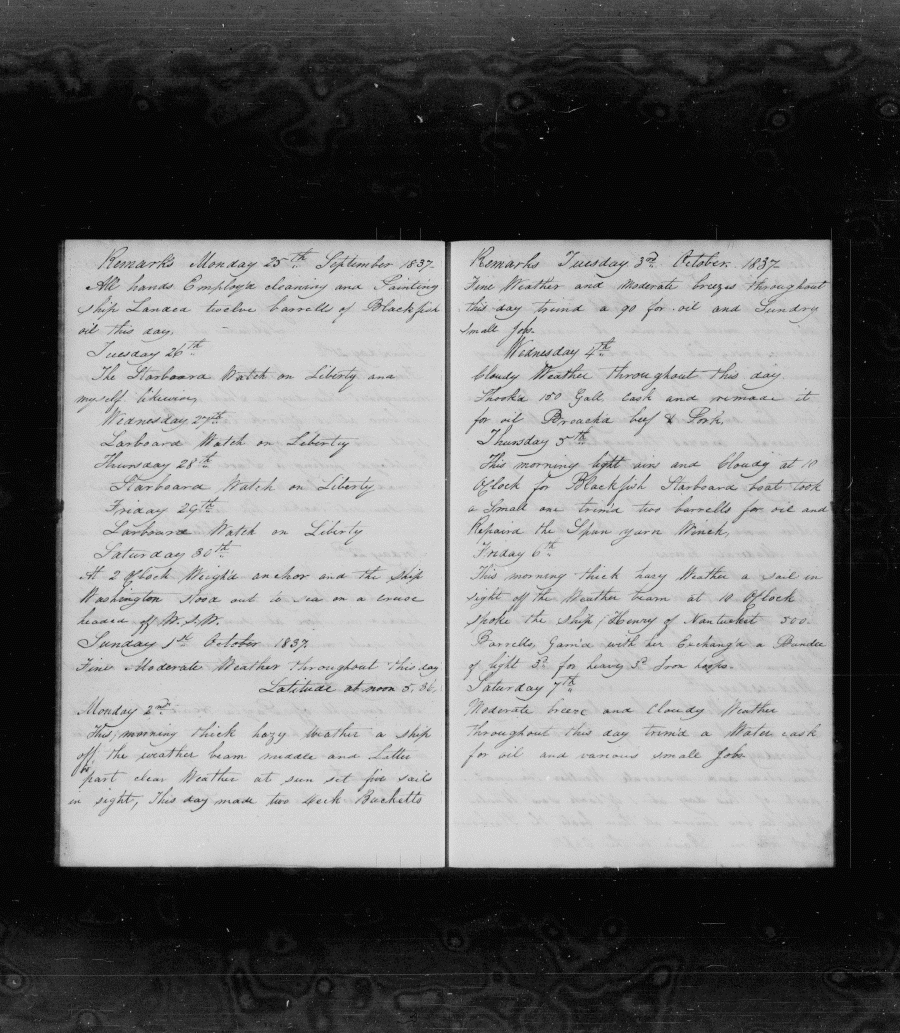 Remarks Monday 25th September 1837
All hands Employd cleaning and Painting
ship Landed twelve barrells of Blackfish
oil this day.
Tuesday 26th
The Starboard Watch on Liberty and
myself likewise,
Wednesday 27th
Larboard Watch on Liberty
Thursday 28th
Starboard Watch on Liberty
Friday 29th
Larboard Watch on Liberty
Saturday 30th
At 2 O'Clock Weigh'd anchor and the ship
Washington stood out to sea on a cruse
headed off W.S.W.
Sunday 1st October 1837
Fine Moderate Weather throughout this day
Latitude at noon 5.36
Monday 2nd
This morning thick hazy weather a ship
off the weather beam middle and Latter
part clear Weather at sun set five sails
in sight, This day made two Bucketts
Remarks Tuesday 3rd October 1837
Fine Weather and moderate breezes throughout
this day trim'd a 90 for oil and Sundry
small Jobs.
Wednesday 4th
Cloudy Weather throughout this day
Shook'd 150 Gall cask and remade it
for oil Broach'd beef & Pork.
Thursday 5th
This morning light airs and Cloudy at 10
O'Clock for Blackfish Starboard boat took
a Small one trim'd two barrells for oil and
Repair'd the Spun yarn Winch,
Friday 6th
This morning thick hazy Weather a sail in
sight off the Weather beam at 10 O'Clock
spoke the ship Henry of Nantucket 500
Barrells, Gam'd with her Exchang'd a Bundle
of light for heavy Iron hoops.
Saturday 7th
Moderate breeze and Cloudy Weather
throughout this day trim'd a Water cask
for oil and various small Jobs